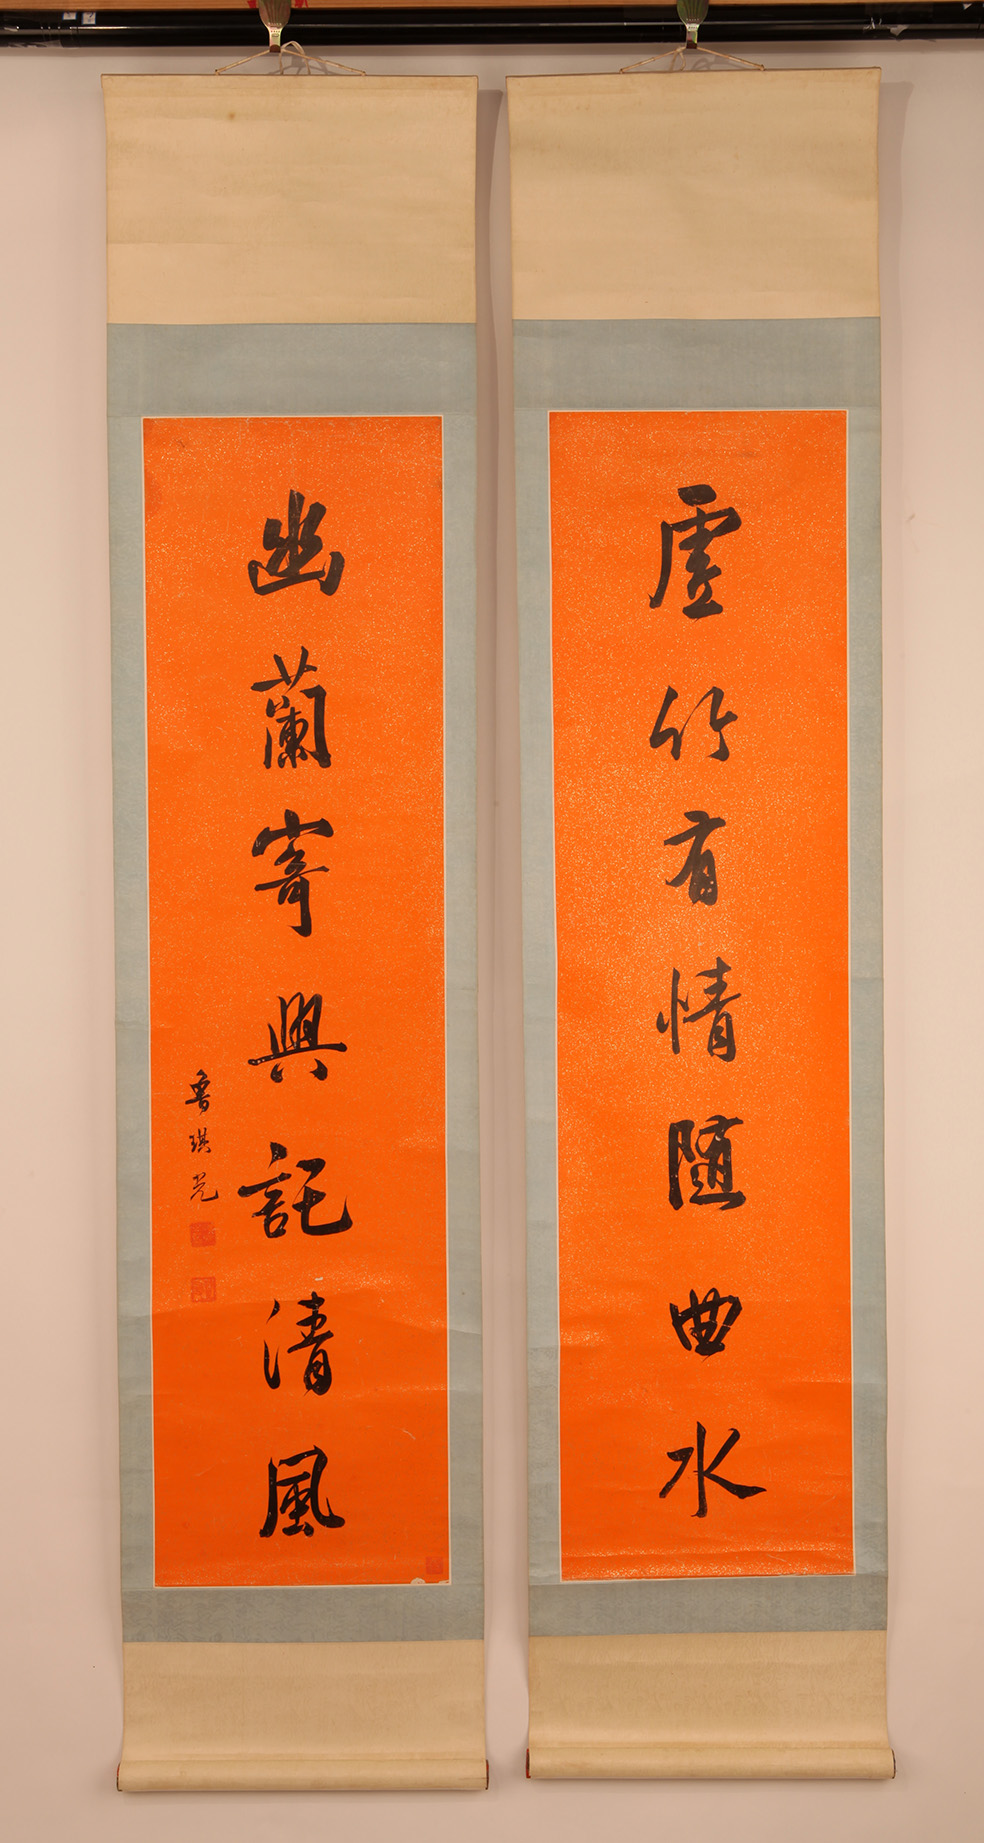 虛竹有情隨曲水
幽蘭寄興託清風
魯琪光